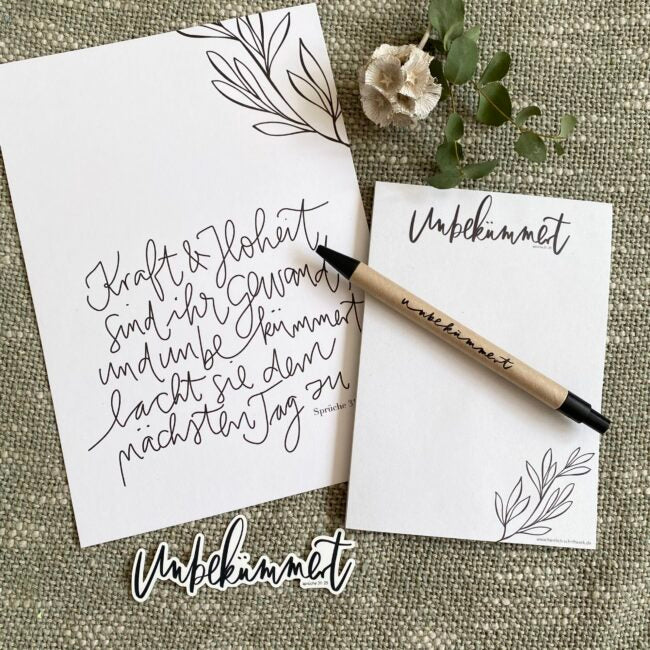 Kraft & Hoheit
sind ihr Gewand,
und unbekümmert
lacht sie dem
nächsten Tag zu
Sprüche 31
Unbekümmert
unbekümmert
Unbekümmert
sprüche 31, 25